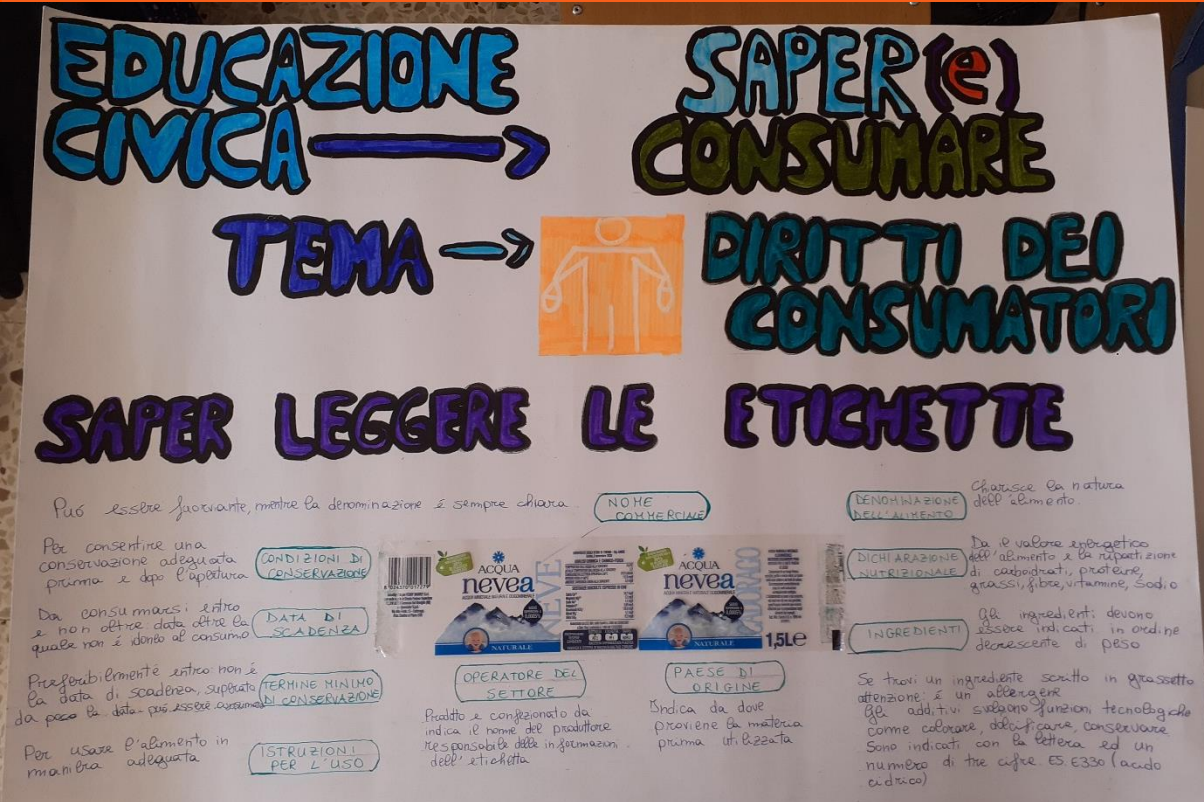 EDUCAZIONE
CIVICA
SAPER(e)
CONSUMARE
TEMA
DIRITTI DEI
CONSUMATORI
SAPER LEGGERE LE ETICHETTE
Può essere fuorviante, mentre la denominazione è sempre chiara
NOME
COMMERCIALE
DENOMINAZIONE
DELL'ALIMENTO
Charisce la natura
dell'alimento.
Per consentire una
conservazione adeguata
prima e dopo l'apertura
CONDIZIONI DI
CONSERVAZIONE
Da consumarsi entro
e non oltre: data oltre la
quale non è idoneo al consumo
DATA DI
SCADENZA
Preferibilmente entro: non è
la data di scadenza, superata
da poco la data può essere
TERMINE MINIMO
DI CONSERVAZIONE
Per usare l'alimento in
maniera adeguata
ISTRUZIONI
PER L'USO
ACQUA
nevea
NATURALE
NEVE
ACQUA
nevea
NATURALE
1,5L e
OPERATORE DEL
SETTORE
Prodtto e confezionato da
indica il nome del produttore
responsabile delle informazioni
dell'etichetta
PAESE DI
ORIGINE
Indica da dove
proviene la materia
prima utilizzata
DICHIARAZIONE
NUTRIZIONALE
Da il valore energetico
dell'alimento e la ripartizione
di carboidrati, proteine,
grassi, fibre, vitamine, sodio
INGREDIENTI
Gli ingredienti devono
essere indicati in ordine
decrescente di peso
Se trovi un ingrediente scritto in grassetto
attenzione: è un allergene
Gli additivi svolgono funzioni tecnologiche
come colorare, dolcificare, conservare
Sono indicati con la lettera ed un
numero di tre cifre. ES. E330 (acido
cidrico)